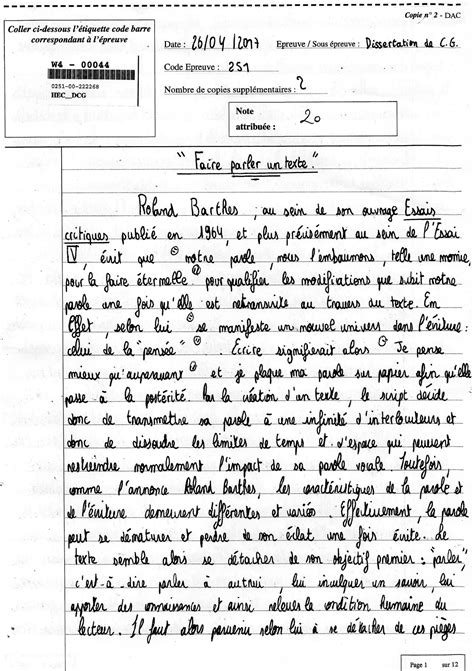 Copie n° 2 - DAC
Coller ci-dessous l'étiquette code barre
correspondant à l'épreuve
W4 - 00044
0251-00-222268
HEC_DCG
Date : 26/04/2017 Epreuve / Sous épreuve : Dissertation de C.G.
Code Epreuve : 251
Nombre de copies supplémentaires : 2
Note
attribuée : 20
"Faire parler un texte."
Roland Barthes, au sein de son ouvrage Essais
critiques publié en 1964, et plus précisément au sein de l'Essai
V, écrit que "notre parole, nous l'embaumons, telle une momie,
pour la faire éternelle" pour qualifier les modifications que subit notre
parole une fois qu'elle est retranscrite au travers du texte. En
Effet, selon lui "se manifeste un nouvel univers dans l'écriture :
celui de la "pensée"". Ecrire signifierait alors "Je pense
mieux qu'auparavant" et je plaque ma parole sur papier afin qu'elle
passe à la postérité. Par la création d'un texte, le script décide
donc de transmettre sa parole à une infinité d'interlocuteurs et
donc de dissoudre les limites de temps et d'espace qui peuvent
restreindre normalement l'impact de sa parole vocale. Toutefois,
comme l'annonce Roland Barthes, les caractéristiques de la parole et
de l'écriture demeurent différentes et variées. Effectivement, la parole
peut se dénaturer et perdre de son éclat une fois écrite. Le
texte semble alors se détacher de son objectif premier : "parler",
c'est-à-dire parler à autrui, lui inculquer un savoir, lui
apporter des connaissances et ainsi relever la condition humaine du
lecteur. Il faut alors parvenir selon lui à se détacher de ces pièges
Page 1 sur 12